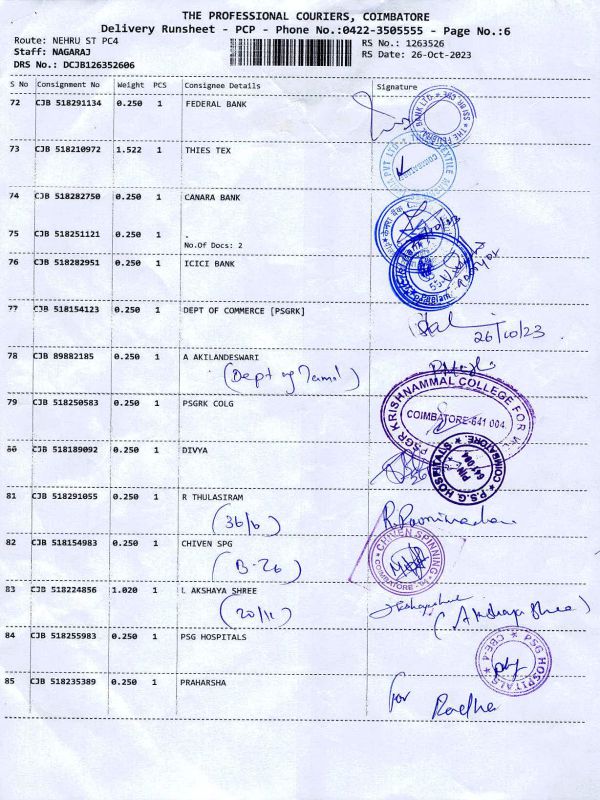 THE PROFESSIONAL COURIERS, COIMBATORE
Delivery Runsheet - PCP - Phone No.:0422-3505555 - Page No.:6
Route: NEHRU ST PC4
RS No.: 1263526
Staff: NAGARAJ
RS Date: 26-Oct-2023
DRS No.: DCJB126352606
S No Consignment No Weight PCS Consignee Details Signature
72 CJB 518291134 0.250 1 FEDERAL BANK
73 CJB 518210972 1.522 1 THIES TEX
74 CJB 518282750 0.250 1 CANARA BANK
75 CJB 518251121 0.250 1 .
No.Of Docs: 2
76 CJB 518282951 0.250 1 ICICI BANK
77 CJB 518154123 0.250 1 DEPT OF COMMERCE [PSGRK]
26/10/23
78 CJB 89882185 0.250 1 A AKILANDESWARI
(Dept of Tamil)
79 CJB 518250583 0.250 1 PSGRK COLG
PSGR KRISHNAMMAL COLLEGE FOR
COIMBATORE-641 004
80 CJB 518189092 0.250 1 DIVYA
P.S.G. HOSPITALS
COIMBATORE
PIN
641 004
81 CJB 518291055 0.250 1 R THULASIRAM
(36/6)
82 CJB 518154983 0.250 1 CHIVEN SPG
(B-26)
CHIVEN SPINNING
COIMBATORE
83 CJB 518224856 1.020 1 L AKSHAYA SHREE
(20/11)
(Akshaya Shree)
84 CJB 518255983 0.250 1 PSG HOSPITALS
PSG HOSPITALS
CBE-4
85 CJB 518235389 0.250 1 PRAHARSHA
for Radha